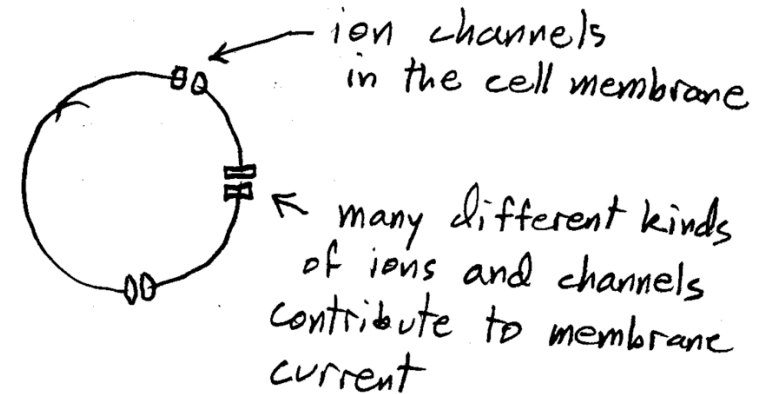 ion channels
in the cell membrane
many different kinds
of ions and channels
contribute to membrane
current